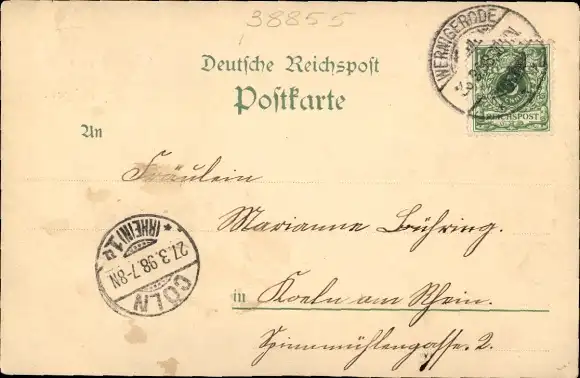 38855
WERNIGERODE
REICHSPOST
Deutsche Reichspost
Postkarte
An
Fräulein
Marianne Bühring.
in Koeln am Rhein.
Spinnmühlengasse. 2.
CÖLN (RHEIN) 1
27.3.98.7-8N